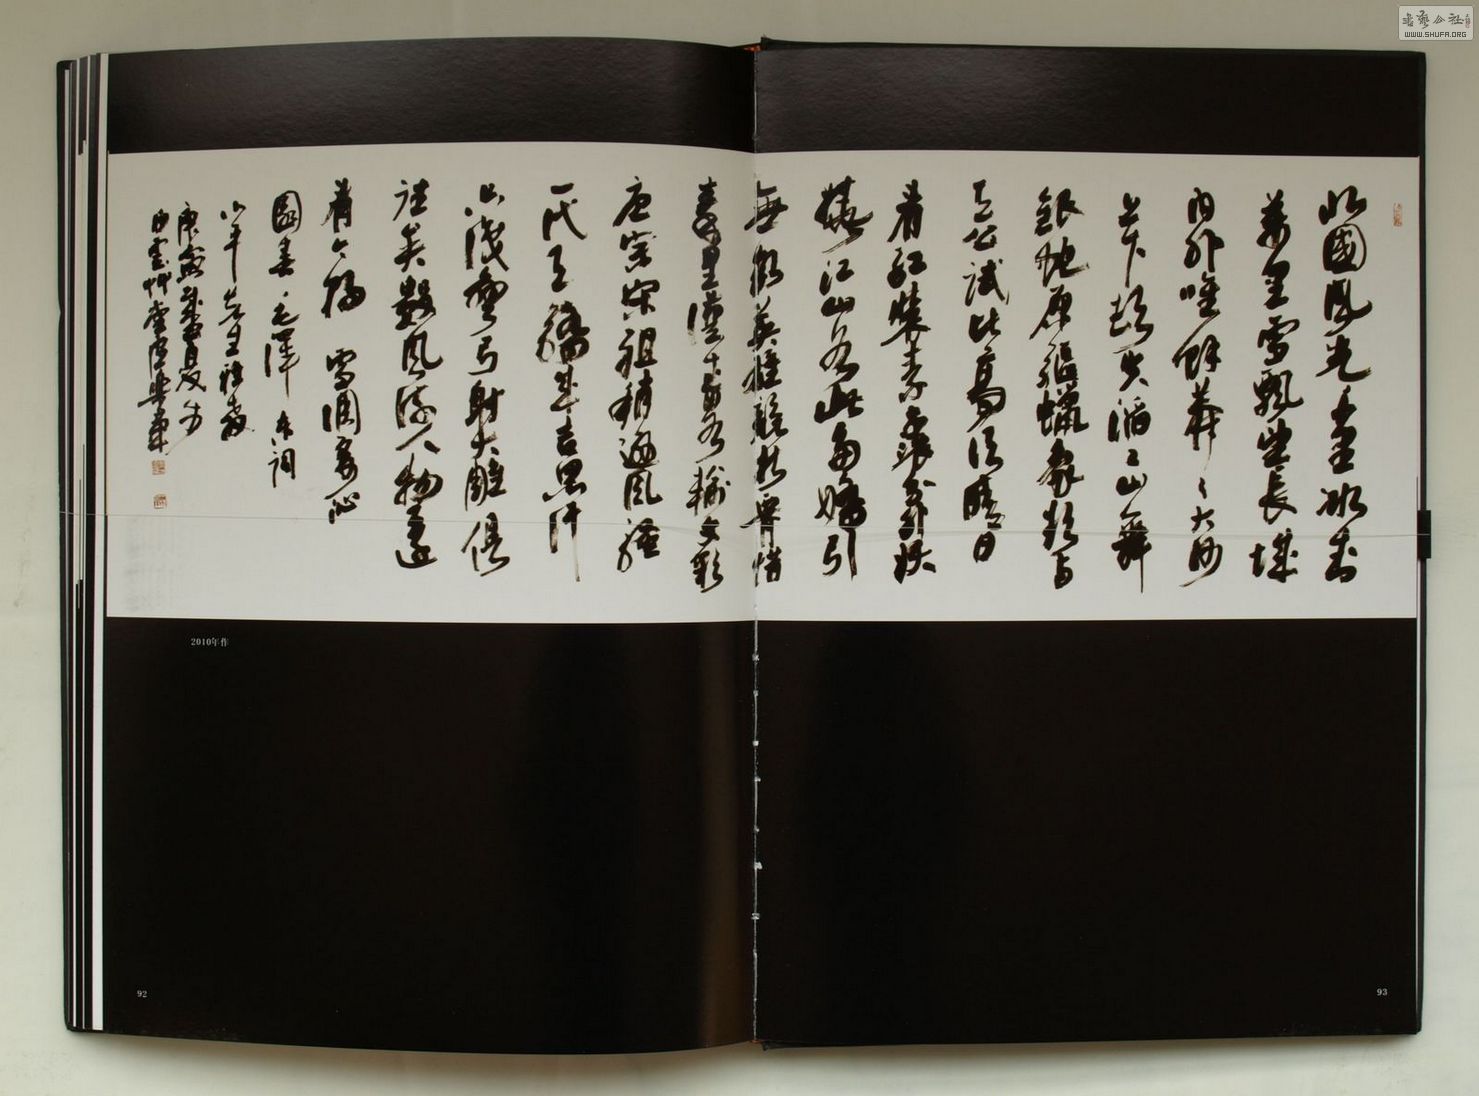 北國風光千里冰封
萬里雪飄望長城
内外唯餘莽ミ大河
上下頓失滔ミ山舞
銀蛇原馳蠟象欲与
天公試比高須晴日
看紅裝素裹分外妖
嬈江山如此多嬌引
無數英雄競折腰惜
秦皇漢武略輸文彩
唐宗宋祖稍遜風騷
一代天驕成吉思汗
只識彎弓射大雕俱
往矣數風流人物還
看今朝 雪調寄沁
園春毛澤東詞
平先生雅教
庚寅歲夏
白雲草堂
2010年作
92
93
書藝公社
WWW.SHUFA.ORG